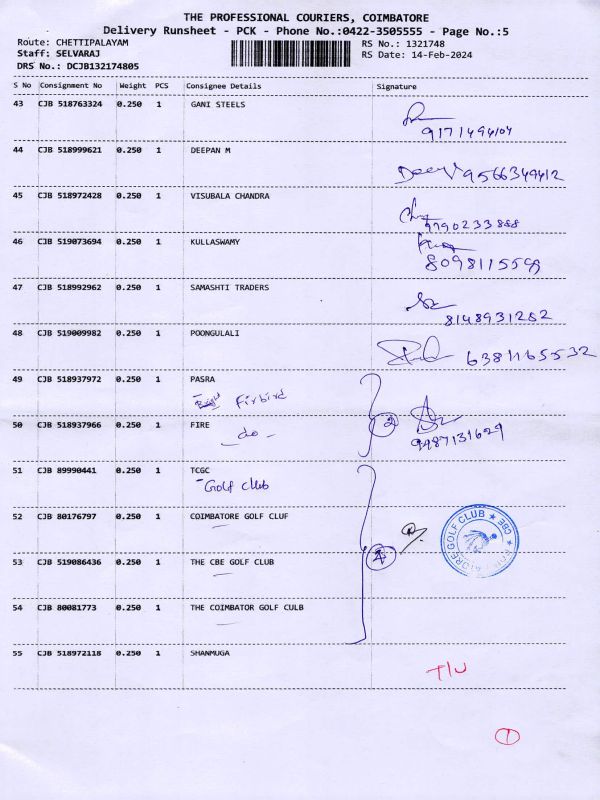 THE PROFESSIONAL COURIERS, COIMBATORE
Delivery Runsheet - PCK - Phone No.:0422-3505555 - Page No.:5
Route: CHETTIPALAYAM RS No.: 1321748
Staff: SELVARAJ RS Date: 14-Feb-2024
DRS No.: DCJB132174805
S No Consignment No Weight PCS Consignee Details Signature
43 CJB 518763324 0.250 1 GANI STEELS
9171494104
44 CJB 518999621 0.250 1 DEEPAN M
9566349412
45 CJB 518972428 0.250 1 VISUBALA CHANDRA
9790233888
46 CJB 519073694 0.250 1 KULLASWAMY
47 CJB 518992962 0.250 1 SAMASHTI TRADERS
8148931252
48 CJB 519009982 0.250 1 POONGULALI
6381165532
49 CJB 518937972 0.250 1 PASRA
Firbird
50 CJB 518937966 0.250 1 FIRE
- do - 2 9487131629
51 CJB 89990441 0.250 1 TCGC
- Golf Club
52 CJB 80176797 0.250 1 COIMBATORE GOLF CLUF
COIMBATORE GOLF CLUB ★ CBE ★
53 CJB 519086436 0.250 1 THE CBE GOLF CLUB
4
54 CJB 80081773 0.250 1 THE COIMBATOR GOLF CULB
55 CJB 518972118 0.250 1 SHANMUGA
T/U
1